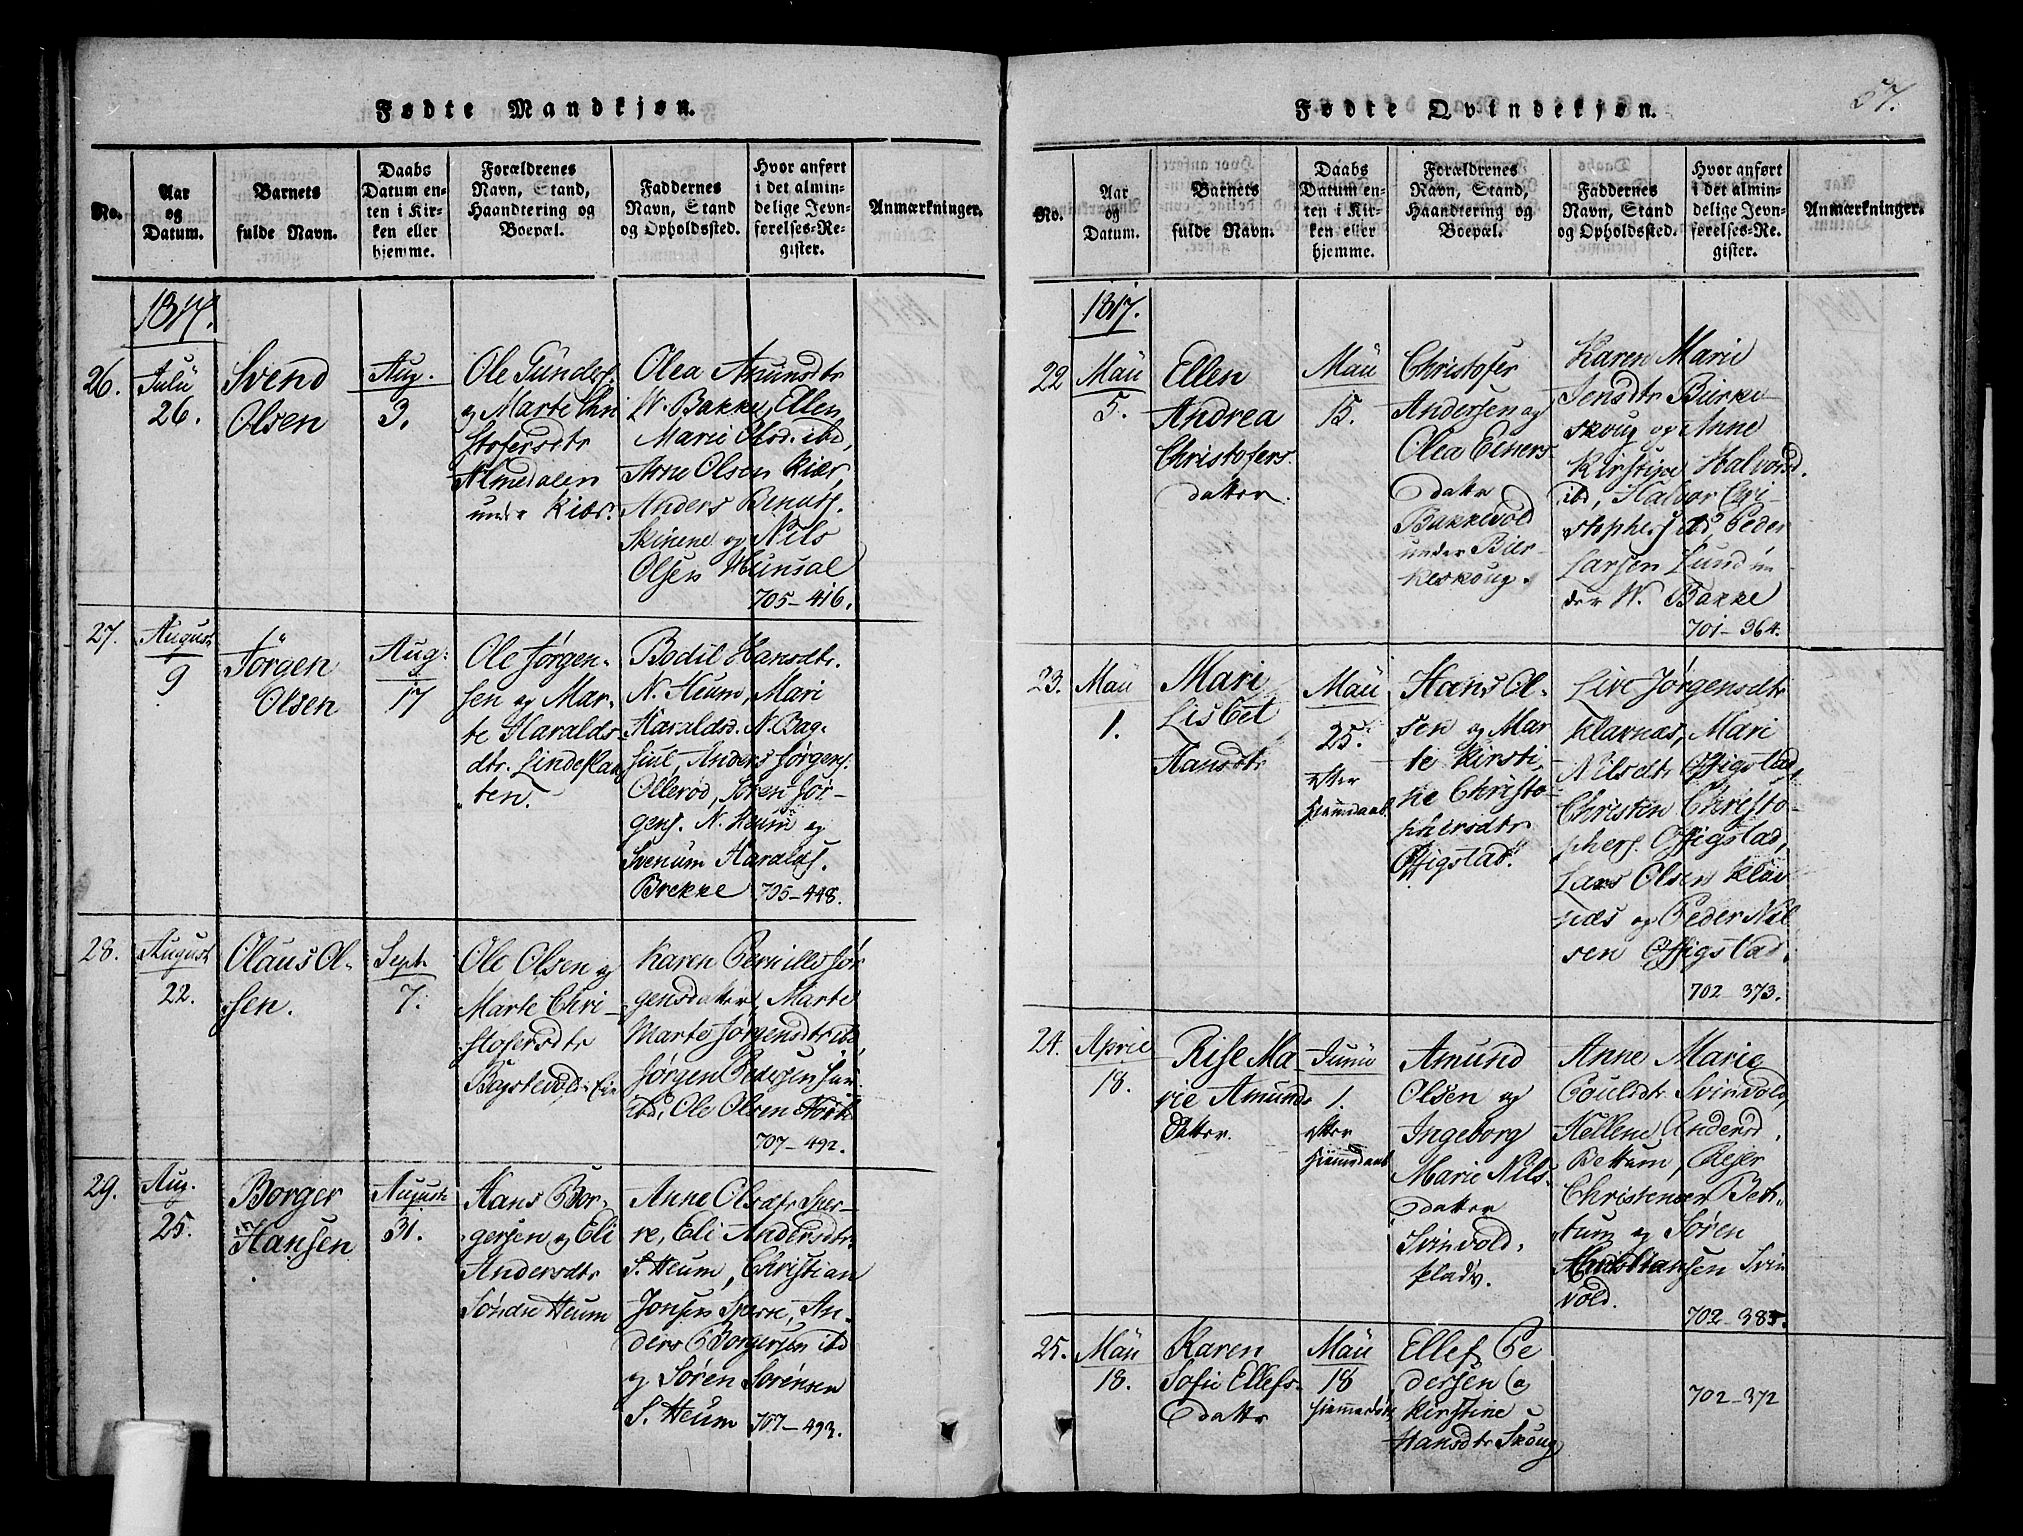 Fødte Mandkjøn.
No.
Aar
og
Datum.
Barnets
fulde Navn.
Daabs
Datum en-
ten i Kir-
ken eller
hjemme.
Forældrenes
Navn, Stand,
Haandtering og
Boepæl.
Faddernes
Navn, Stand
og Opholdssted.
Hvor anført
i det almin-
delige Jevn-
førelses-Re-
gister.
Anmærkninger.
1817.
26.
Julii
26.
Svend
Olsen
Aug.
3.
Ole Gunders.
og Marte Chri
stofersdtr
Almedalen
under Kiær.
Olea Amunsdtr
N. Bakke, Ellen
Marie Olsd. ibd,
Arne Olsen Kiær,
Anders Bentss.
Skinene og Nils
Olsen Hunsal
705-416.
27.
August
9
Jörgen
Olsen
Aug:
17
Ole Jørgen-
sen og Mar-
te Haralds-
dtr. Lindeflaa
ten.
Bodil Hansdtr.
N. Heum, Mari
Haraldsd. N. Bag-
Anders Jørgens.
Ollerød, Søren Jør-
gens. N. Heum og
Svenum Haralds.
Brekke 705-448.
28.
August
22.
Olaus Ol-
sen.
Sept.
7.
Ole Olsen og
Marte Chri-
stofersdtr
Karen Pernille Jør
gensdatter, Marte
Marte Jørgensdtr ibd,
Jørgen Pedersen
ibd, Ole Olsen
707-492.
29.
Aug.
25.
Borger
Hansen
August
31.
Hans Bor-
gersen og Eli
Andersdtr
Søndre Heum
Anne Olsdtr Sper-
re, Eli Andersdtr.
S. Heum, Christian
Jonsen Sperre, An-
ders Borgersen ibd
og Søren Sørensen
S. Heum 707-493.
Fødte Qvindekjøn.
57.
No.
Aar
og
Datum.
Barnets
fulde Navn.
Daabs
Datum en-
ten i Kir-
ken eller
hjemme.
Forældrenes
Navn, Stand,
Haandtering og
Boepæl.
Faddernes
Navn, Stand
og Opholdssted.
Hvor anført
i det almin-
delige Jevn-
førelses-Re-
gister.
Anmærkninger.
1817.
22
Maii
5.
Ellen
Andrea
Christofers.
datter.
Maii
15.
Christofer
Andersen og
Olea Einers
datter
Bakkevold
under Bier-
keskoug.
Karen Marie
Jensdtr Birke
skoug og Anne
Kirstine Halvorsd.
ibd, Halvor Chri-
stophers. ibd, Peder
Larsen Lund un
der N. Bakke
701-364.
23.
Maii
1.
Mari
Lisbet
Hansdtr
Maii
25.
efter
Hiemdaab.
Hans Ol-
sen og Mar
te Kirsti-
ne Christo-
phersdtr
Offigstad.
Live Jørgensdtr
Klavnæs, Mari
Nilsdtr Offigstad,
Christen Christo-
phers. Offigstad,
Lars Olsen Klav
næs og Peder Nil
sen Offigstad.
702-373.
24.
April
18.
Rise Ma-
rie Amunds
datter.
Junii
1.
efter
Hiemdaab
Amund
Olsen og
Ingeborg
Marie Nils-
datter
Svinvold-
pladv.
Anne Marie
Pouldtr. Svinvold,
Hellene Andersd.
Bettum, Peder
Christensen Bet-
tum og Søren
Christiansen Svin
vold.
702-385.
25.
Maii
18.
Karen
Sofie Ellefs-
datter
Maii
18
Ellef Pe
dersen og
Kirstine
Hansdtr Skoug
702-372